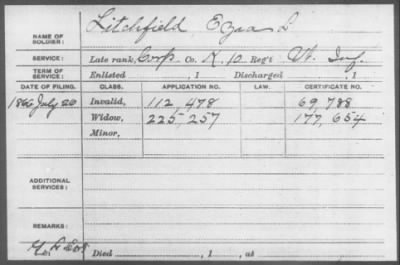 NAME OF SOLDIER: Litchfield Ezra L
SERVICE: Late rank, Corp Co. K, 10 Reg't Vt. Inf.
TERM OF SERVICE: Enlisted , 1 Discharged , 1
DATE OF FILING. CLASS. APPLICATION NO. LAW. CERTIFICATE NO.
1866 July 20 Invalid, 112,478 69,788
Widow, 225,257 177,654
Minor,
ADDITIONAL SERVICES:
REMARKS:
Died , 1 , at